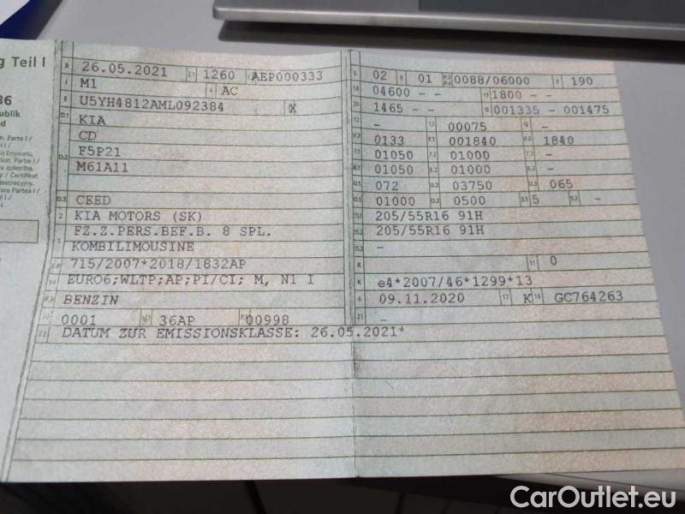 g Teil I
26.05.2021 1260 AEP000333
M1 AC
U5YH4812AML092384 X
KIA
CD
F5P21
M61A11
CEED
KIA MOTORS (SK)
FZ.Z.PERS.BEF.B. 8 SPL.
KOMBILIMOUSINE
715/2007*2018/1832AP
EURO6;WLTP;AP;PI/CI; M, N1 I
BENZIN
0001 36AP 00998
DATUM ZUR EMISSIONSKLASSE: 26.05.2021*
02 01 0088/06000 190
04600 -- 1800 --
1465 -- 001335 - 001475
- 00075 -
0133 001840 1840
01050 01000 -
01050 01000 -
072 03750 065
01000 0500 5 -
205/55R16 91H
205/55R16 91H
-
0
e4*2007/46*1299*13
09.11.2020 K GC764263
-
CarOutlet.eu